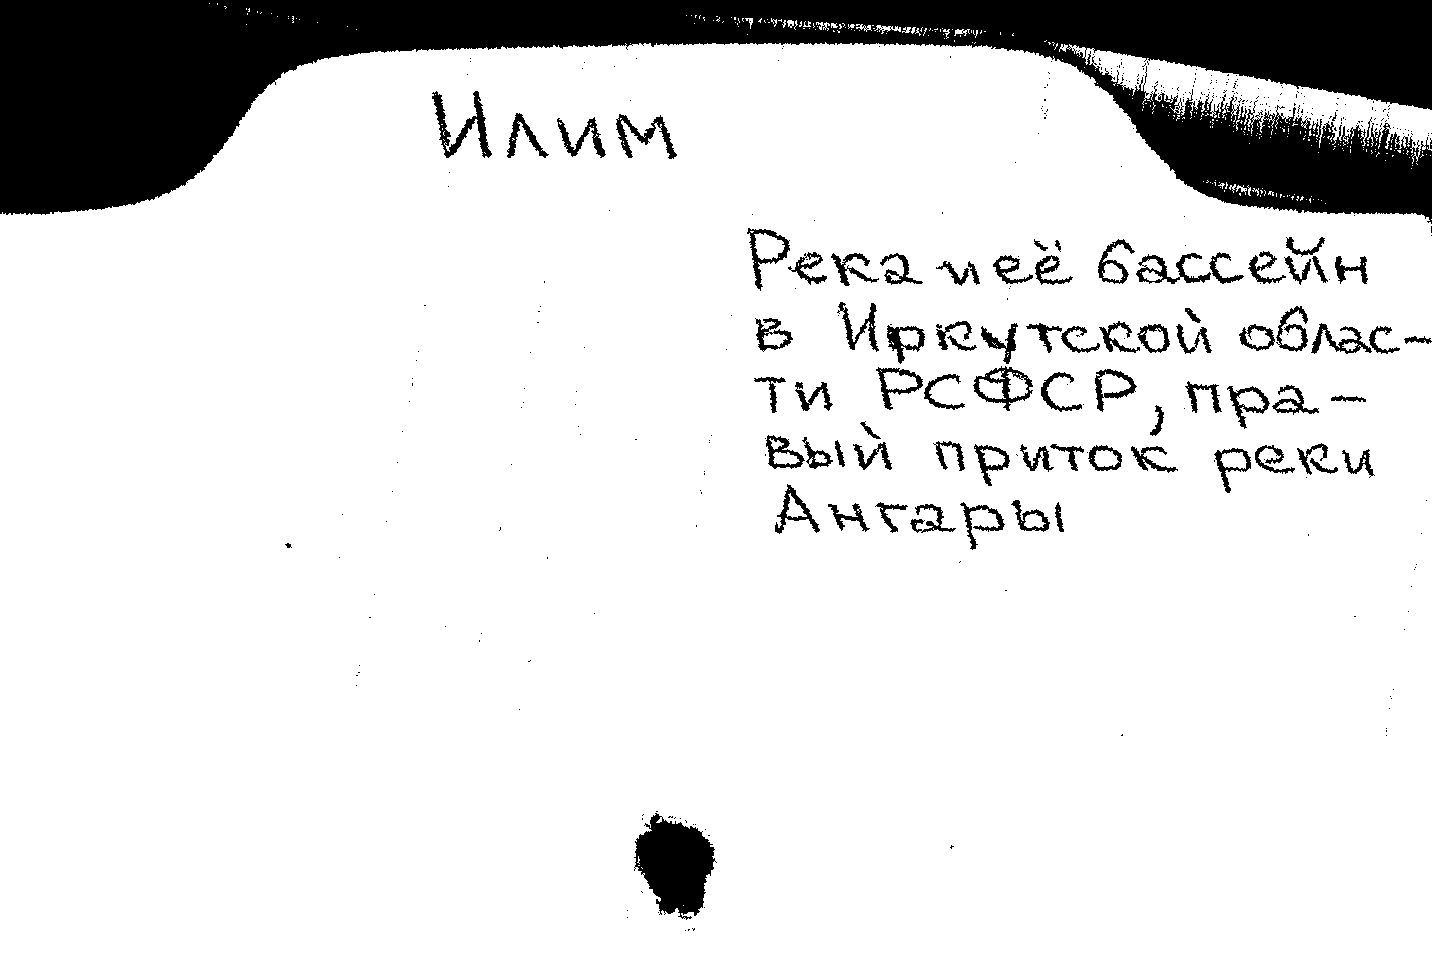 Илим
Река и её бассейн
в Иркутской облас-
ти РСФСР, пра-
вый приток реки
Ангары